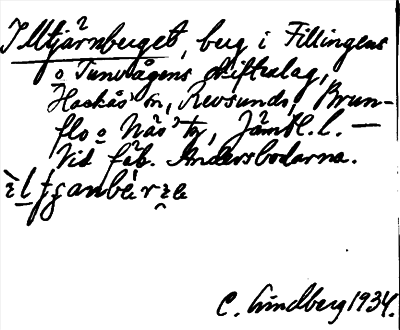 Iltjärnberget, berg i Fillingens
o Tunvågens skifteslag,
Hackås sn, Revsunds, Brun-
flo o Näs tg, Jämtl. l. —
Vid fäb. Andersbodarna.
C. Lindberg 1934.